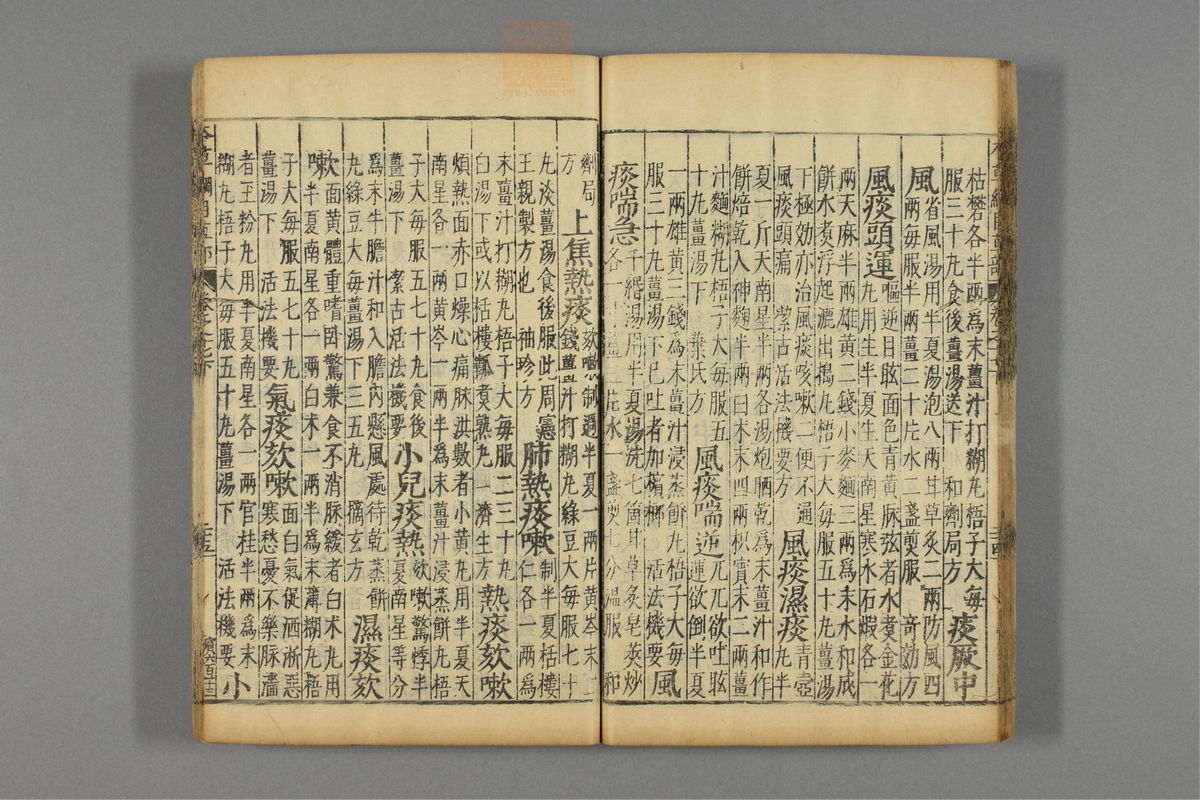 枯礬各半兩爲末薑汁打糊丸梧子大每
服三十丸食後薑湯送下 和劑局方 痰厥中
風 省風湯用半夏湯泡八兩甘草炙二兩防風四
兩每服半兩薑二十片水二盞煎服 奇効方
風痰頭運 嘔逆目眩面色青黄脉弦者水煮金花
丸用生半夏生天南星寒水石煅各一
兩天麻半兩雄黄二錢小麥麵三兩爲末水和成
餅水煮浮起漉出搗丸梧子大每服五十丸薑湯
下極効亦治風痰咳嗽二便不通
風痰頭痛 潔古活法機要方 風痰濕痰 青壺
丸半
夏一斤天南星半兩各湯炮晒乾爲末薑汁和作
餅焙乾入神麴半兩白术末四兩枳實末二兩薑
汁麵糊丸梧子大每服五
十丸薑湯下 葉氏方 風痰喘逆 兀兀欲吐眩
運欲倒半夏
一兩雄黄三錢爲末薑汁浸蒸餅丸梧子大每
服三十丸薑湯下已吐者加檳榔 活法機要 風
痰喘急 千緡湯用半夏湯洗七箇甘草炙皂莢炒
各一寸薑二片水一盞煎七分溫服 和
劑局
方 上焦熱痰 咳嗽制過半夏一兩片黄岑末二
錢薑汁打糊丸綠豆大每服七十
丸淡薑湯食後服此周憲
王親製方也 袖珍方 肺熱痰嗽 制半夏栝樓
仁各一兩爲
末薑汁打糊丸梧子大每服二三十丸
白湯下或以栝樓瓤煮熟丸 濟生方 熱痰欬嗽
煩熱面赤口燥心痛脉洪數者小黄丸用半夏天
南星各一兩黄岑一兩半爲末薑汁浸蒸餅丸梧
子大每服五七十丸食後
薑湯下 潔古活法機要 小兒痰熱 欬嗽驚悸半
夏南星等分
爲末牛膽汁和入膽內懸風處待乾蒸餅
丸綠豆大每薑湯下三五丸 摘玄方 濕痰欬
嗽 面黄體重嗜困驚兼食不消脉緩者白术丸用
半夏南星各一兩白术一兩半爲末薄糊丸梧
子大每服五七十丸
薑湯下 活法機要 氣痰欬嗽 面白氣促洒淅惡
寒愁憂不樂脉濇
者玉粉丸用半夏南星各一兩官桂半兩爲末
糊丸梧子大每服五十丸薑湯下 活法機要 小